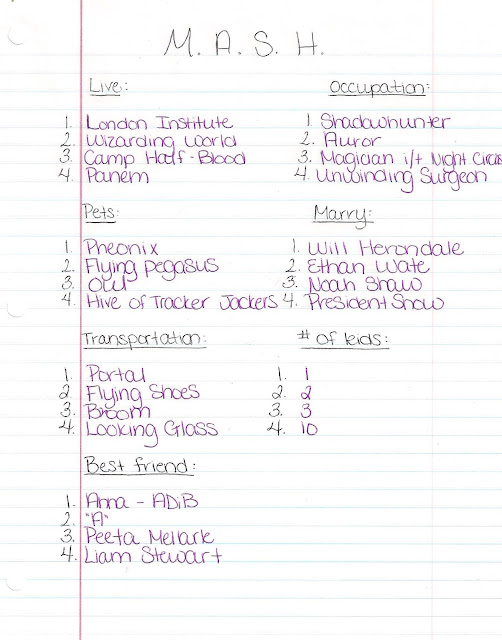 M. A. S. H.
Live:
1. London Institute
2. Wizarding World
3. Camp Half-Blood
4. Panem
Occupation:
1 Shadowhunter
2. Auror
3. Magician i/t Night Circus
4. Unwinding Surgeon
Pets:
1. Pheonix
2. Flying pegasus
3. Owl
4. Hive of Tracker Jackers
Marry:
1. Will Herondale
2. Ethan Wate
3. Noah Shaw
4. President Snow
Transportation:
1. Portal
2. Flying Shoes
3. Broom
4. Looking Glass
# of kids:
1. 1
2. 2
3. 3
4. 10
Best friend:
1. Anna - ADiB
2. "A"
3. Peeta Mellark
4. Liam Stewart